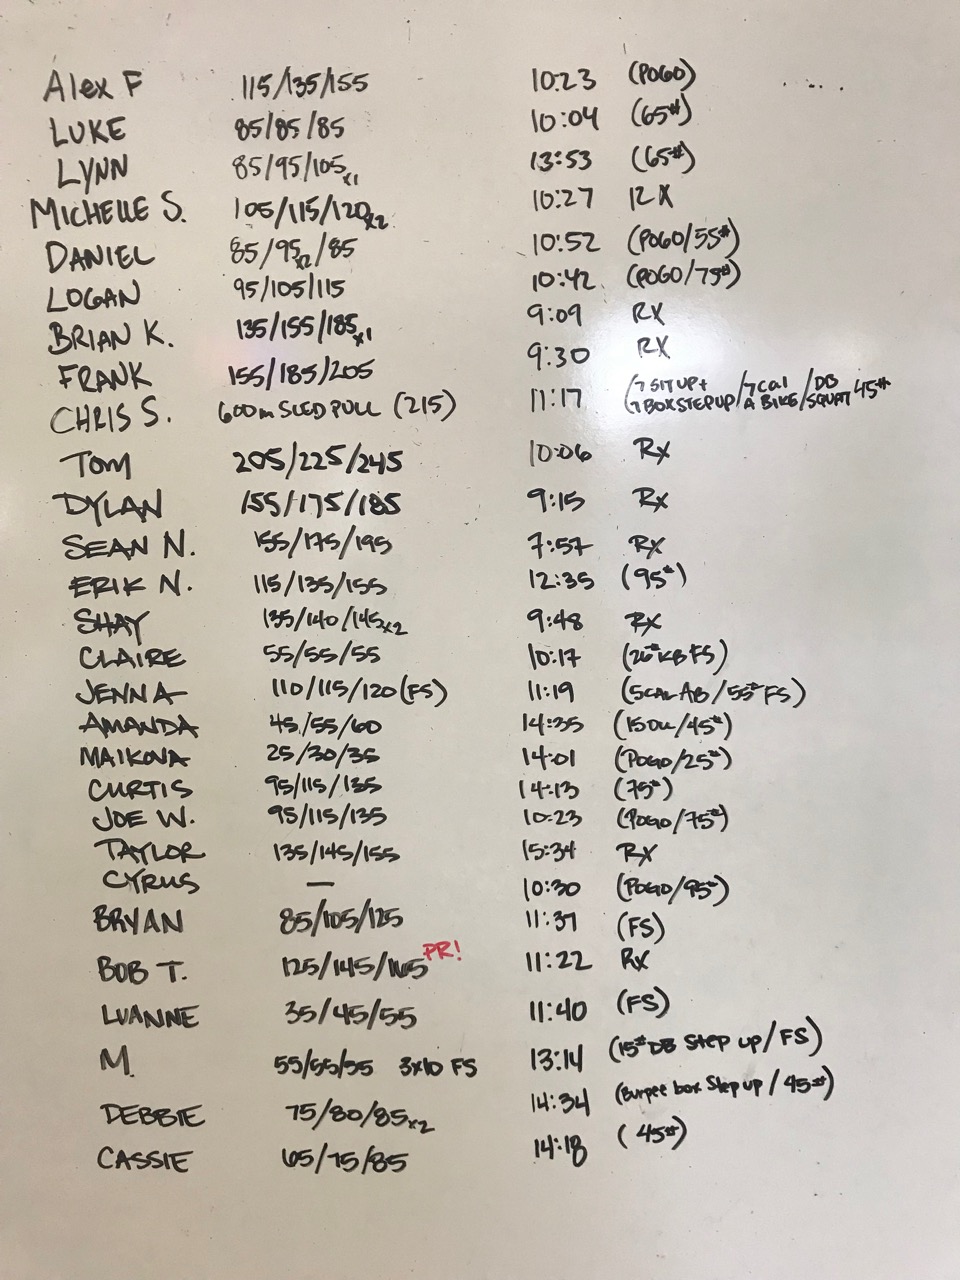 Alex F 115/135/155 10:23 (POGO)
LUKE 85/85/85 10:04 (65#)
LYNN 85/95/105x1 13:53 (65#)
MICHELLE S. 105/115/120x2 10:27 RX
DANIEL 85/95x2/85 10:52 (POGO/55#)
LOGAN 95/105/115 10:42 (POGO/75#)
BRIAN K. 135/155/185x1 9:09 RX
FRANK 155/185/205 9:30 RX
CHRIS S. 600m SLED PULL (215) 11:17 (7 SIT UP + 7 BOX STEP UP/7 CAl A BIKE/DB SQUAT 45#
TOM 205/225/245 10:06 RX
DYLAN 155/175/185 9:15 RX
SEAN N. 155/175/195 7:57 RX
ERIK N. 115/135/155 12:35 (95#)
SHAY 135/140/145x2 9:48 RX
CLAIRE 55/55/55 10:17 (26# KB FS)
JENNA 110/115/120 (FS) 11:19 (5 CAL AB/55# FS)
AMANDA 45/55/60 14:35 (15 /45#)
MAIKOVA 25/30/35 14:01 (POGO/25#)
CURTIS 95/115/135 14:13 (75#)
JOE W. 95/115/135 10:23 (POGO/75#)
TAYLOR 135/145/155 15:34 RX
CYRUS — 10:30 (POGO/95#)
BRYAN 85/105/125 11:37 (FS)
BOB T. 125/145/165 PR! 11:22 RX
LUANNE 35/45/55 11:40 (FS)
M 55/55/55 3x10 FS 13:14 (15# DB Step up/FS)
DEBBIE 75/80/85x2 14:34 (Burpee box Step up / 45#)
CASSIE 65/75/85 14:18 (45#)